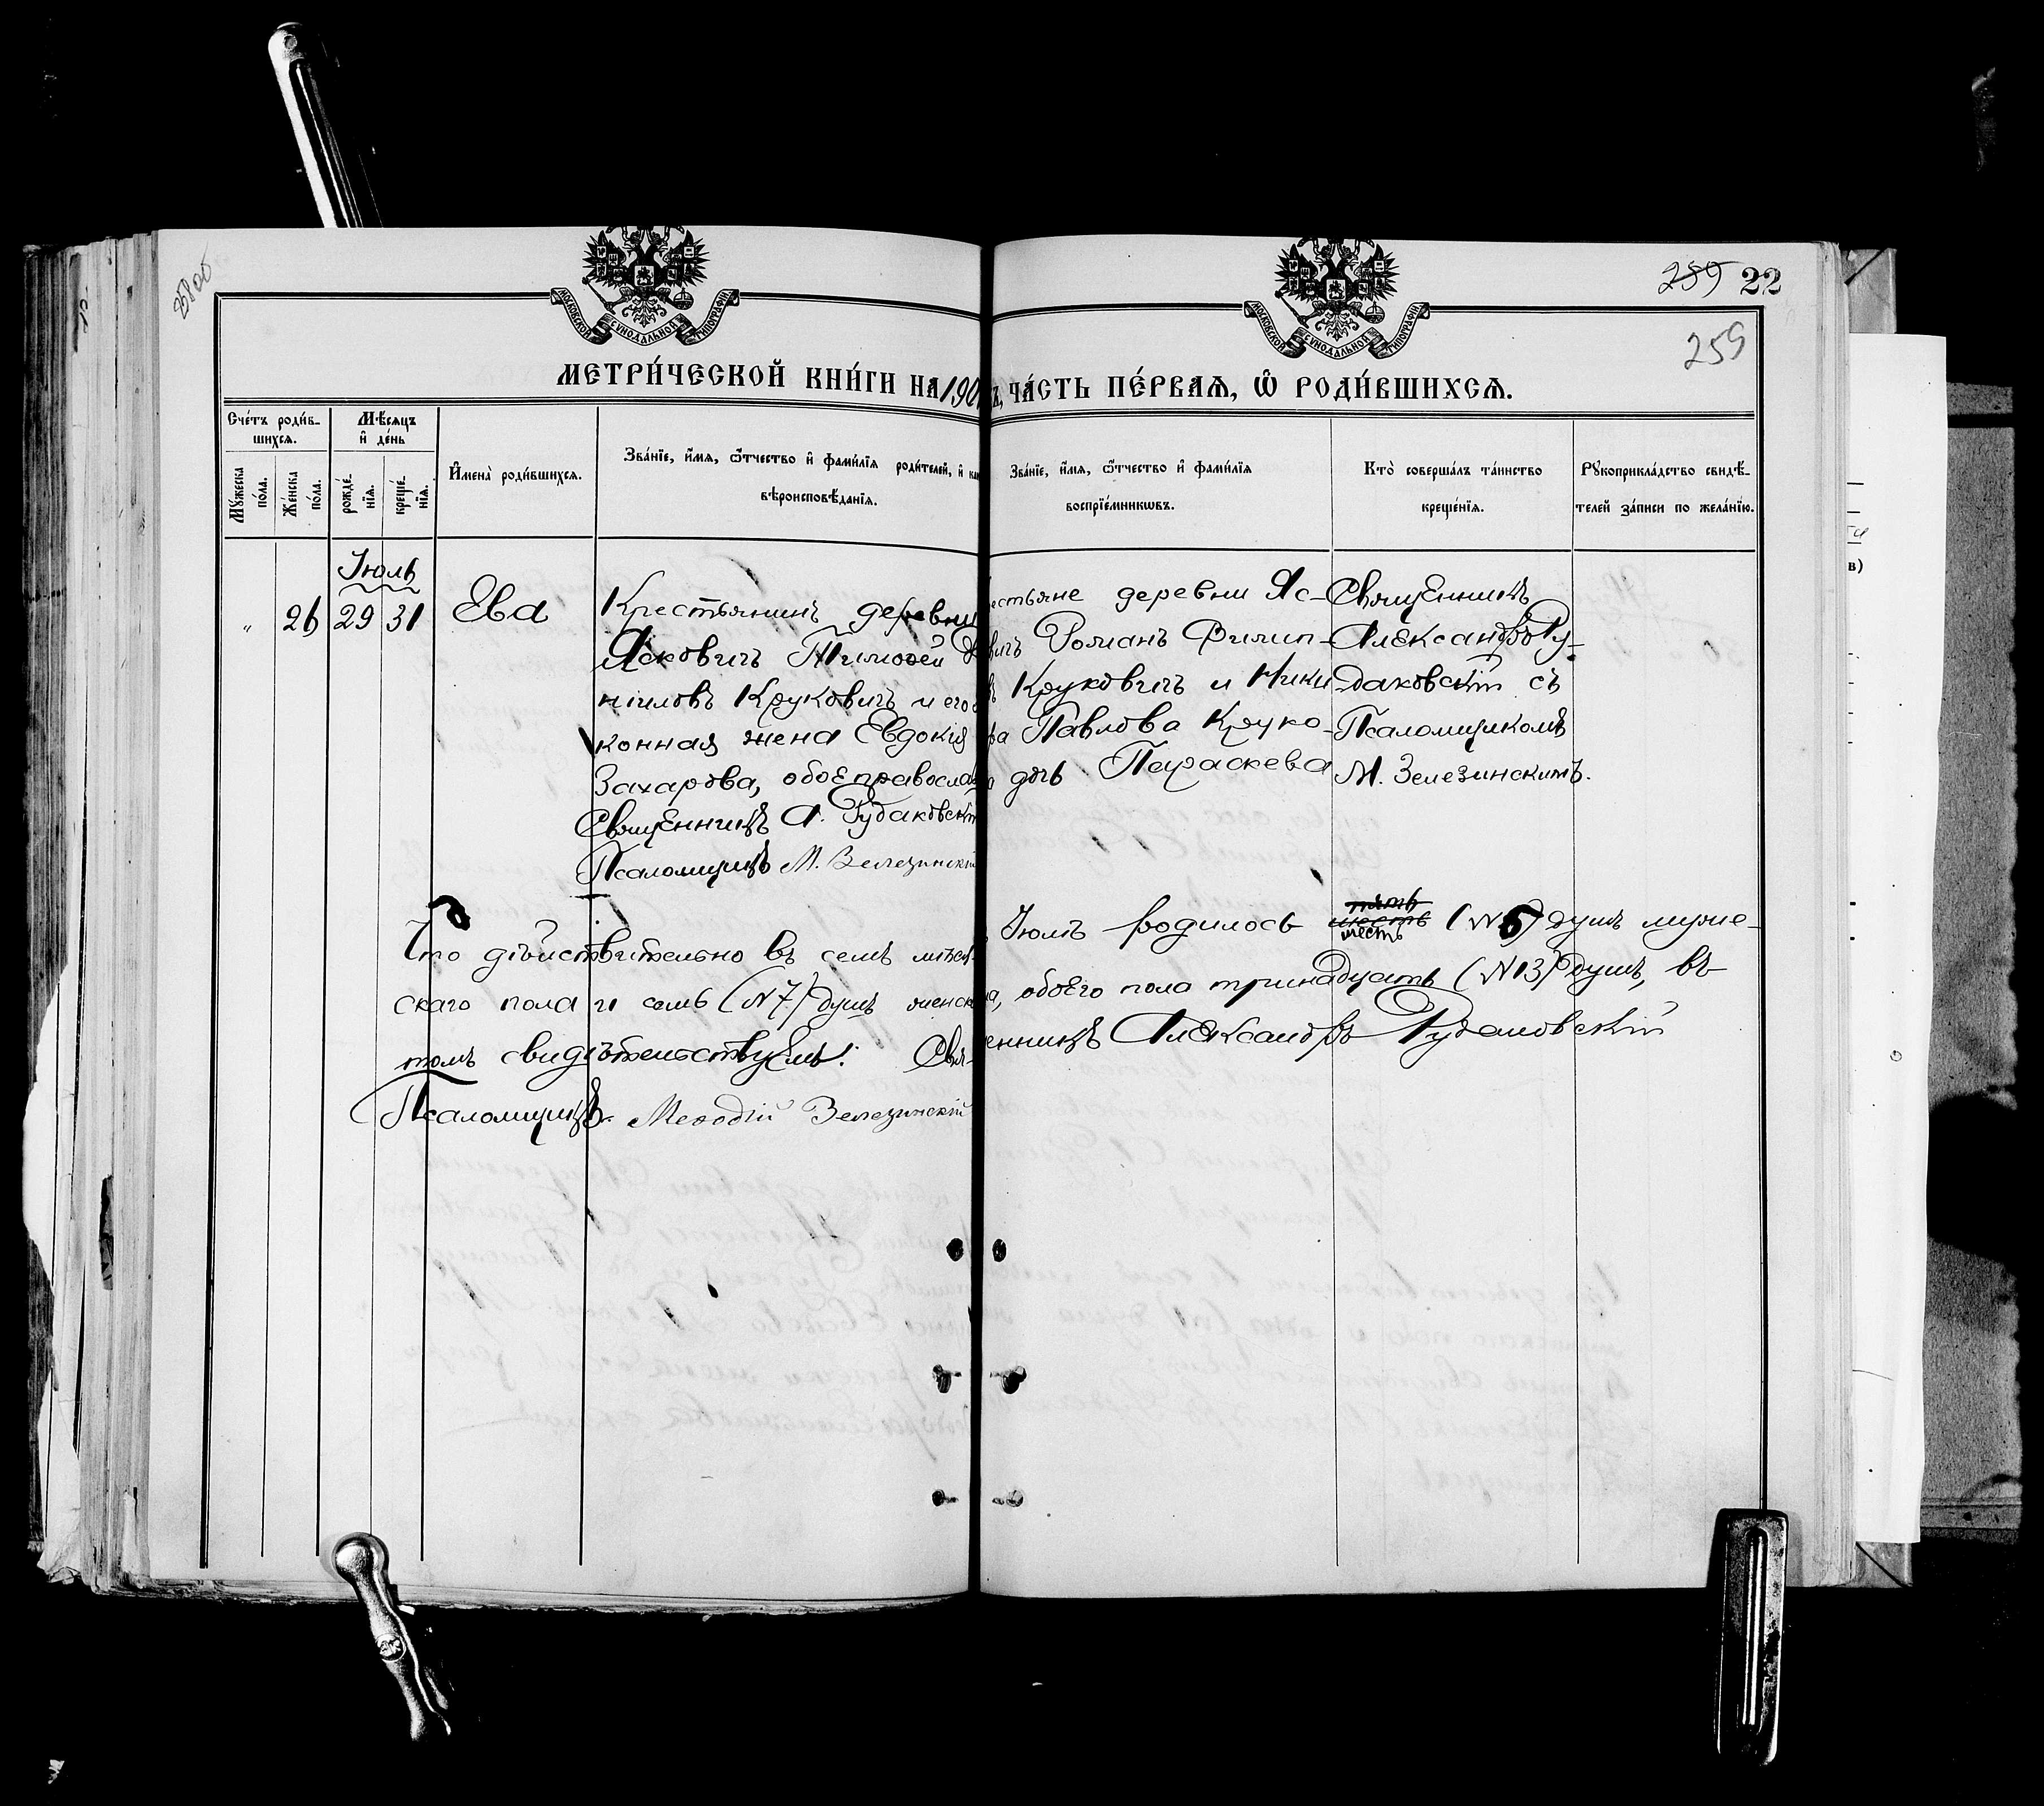 258 об
259 22
259
МОСКОВСКОЙ СУНОДАЛЬНОЙ ТИПОГРАФІИ
МОСКОВСКОЙ СУНОДАЛЬНОЙ ТИПОГРАФІИ
МЕТРИ́ЧЕСКОЙ КНИ́ГИ НА 190
ЧА́СТЬ ПЕ́РВАЯ, Ѡ҆ РОДИ́ВШИХСЯ.
Сче́тъ роди́в-
шихся.
Мꙋ́жеска
по́ла.
Же́нска
по́ла.
Мѣ́сяцъ
и҆ де́нь
рожде́-
нїя.
креще́-
нїя.
И҆мена̀ роди́вшихся.
Зва́нїе, и҆́мя, ѻ҆́тчество и҆ фами́лїя роди́телей, и҆ как
вѣроисповѣ́данїя.
Зва́нїе, и҆́мя, ѻ҆́тчество и҆ фами́лїя
воспрїе́мникѡвъ.
Кто̀ соверша́лъ та́инство
креще́нїя.
Рꙋкоприкла́дство свидѣ́-
телей за́писи по жела́нїю.
Іюль
„ 26 29 31 Ева
Крестьянинъ деревни
Ясковичъ Тимоѳей Да
ніиловъ Круковичъ и его
конная жена Евдокія
Захарова, обое правосла
Священникъ А. Рудаковскі
Псаломщикъ М. Зелезинскій
естьяне деревни Яс-
вичъ Романъ Филип-
въ Круковичъ и Ники
ра Павлова Круко-
а дочь Параскева
Священникъ
Александръ Ру-
даковскій съ
Псаломщикомъ
М. Зелезинскимъ.
Что дѣйствительно въ семъ мѣсяц
Іюлѣ родилось шесть пять шесть (№ 6) душъ муже-
скаго пола и семь (№ 7) душъ женск
ла, обоего пола тринадцать (№ 13) душъ, въ
томъ свидѣтельствуемъ: Свя-
енникъ Александръ Рудаковскій
Псаломщикъ Меѳодій Зелезинскій